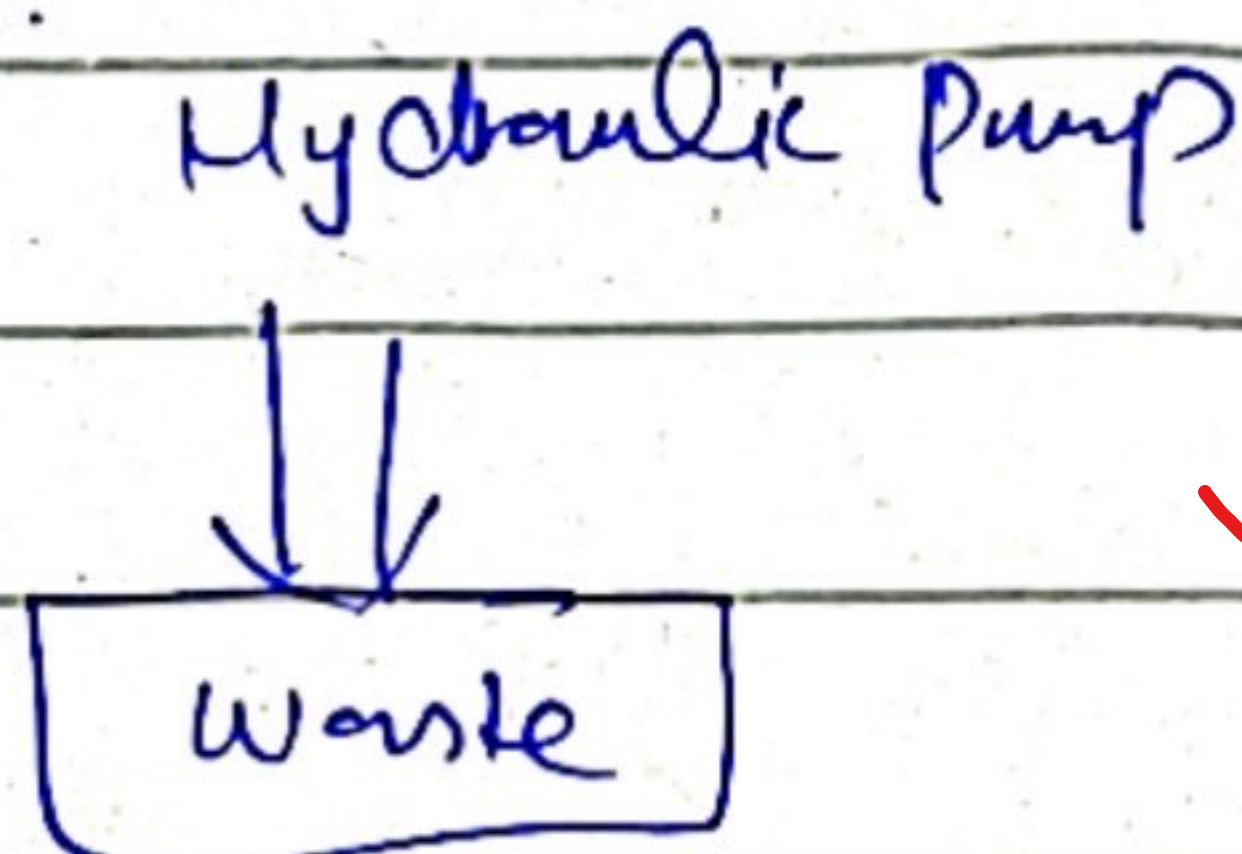 Hydraulic Pump
Waste